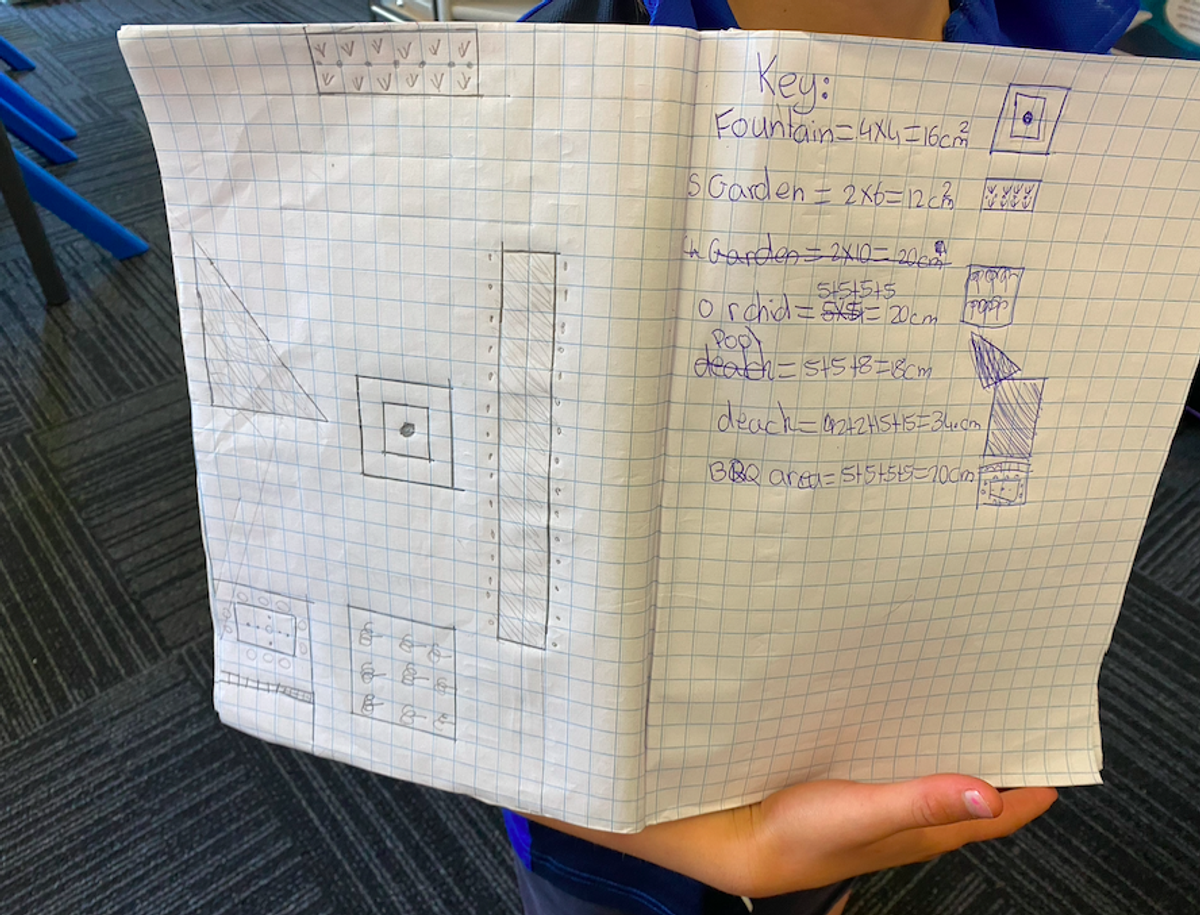 Key:
Fountain=4x4=16cm²
S Garden = 2x6=12cm²
Garden=2x10=20cm²
5+5+5+5
Orchid=5x5=20cm
Pool
deach=5+5+8=18cm
deach=2+2+15+15=34cm
BBQ area=5+5+5+5=20cm